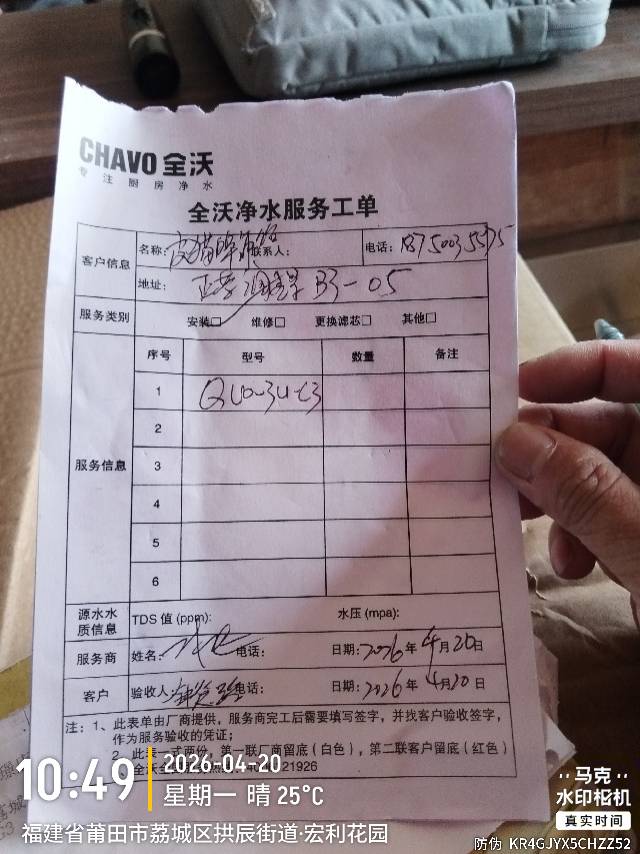 CHAVO 全沃
专注厨房净水
全沃净水服务工单
客户信息 名称: 联系人: 电话: 18750035575
地址: B3-05
服务类别 安装□ 维修□ 更换滤芯□ 其他□
服务信息 序号 型号 数量 备注
1
2
3
4
5
6
源水水质信息 TDS 值 (ppm): 水压 (mpa):
服务商 姓名: 电话: 日期: 2026年4月20日
客户 验收人: 电话: 日期: 2026年4月20日
注: 1、此表单由厂商提供，服务商完工后需要填写签字，并找客户验收签字，
作为服务验收的凭证；
2、此表一式两份，第一联厂商留底（白色），第二联客户留底（红色）
21926
10:49 2026-04-20
星期一 晴 25℃
福建省莆田市荔城区拱辰街道·宏利花园
马克
水印相机
真实时间
防伪 KR4GJYX5CHZZ52